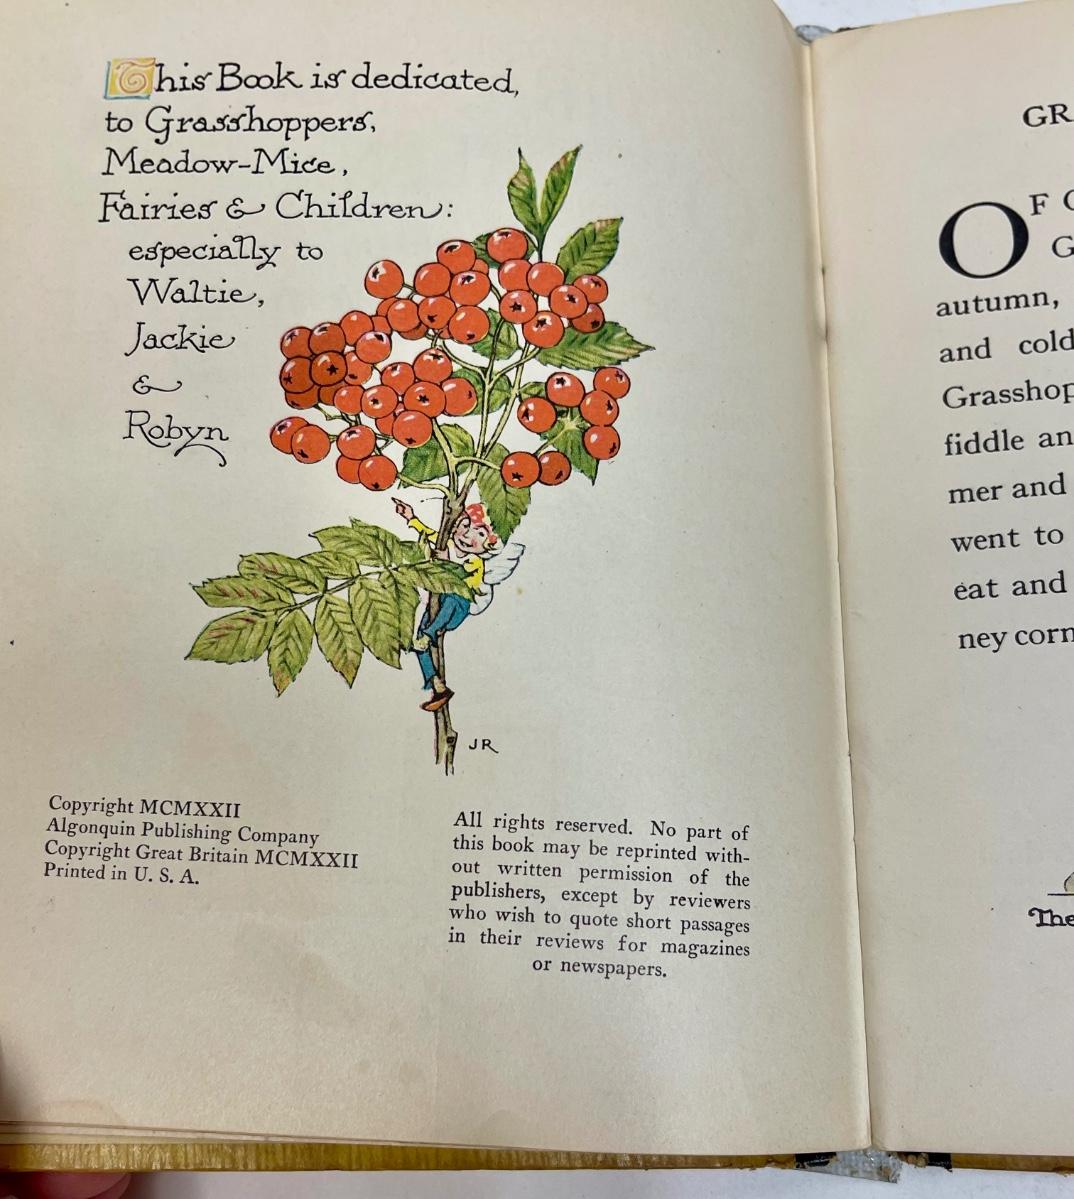 This Book is dedicated,
to Grasshoppers,
Meadow-Mice,
Fairies & Children:
especially to
Waltie,
Jackie
&
Robyn
JR
Copyright MCMXXII
Algonquin Publishing Company
Copyright Great Britain MCMXXII
Printed in U. S. A.
All rights reserved. No part of
this book may be reprinted with-
out written permission of the
publishers, except by reviewers
who wish to quote short passages
in their reviews for magazines
or newspapers.
GR
OF
G
autumn,
and cold
Grasshop
fiddle an
mer and
went to
eat and
ney corn
The